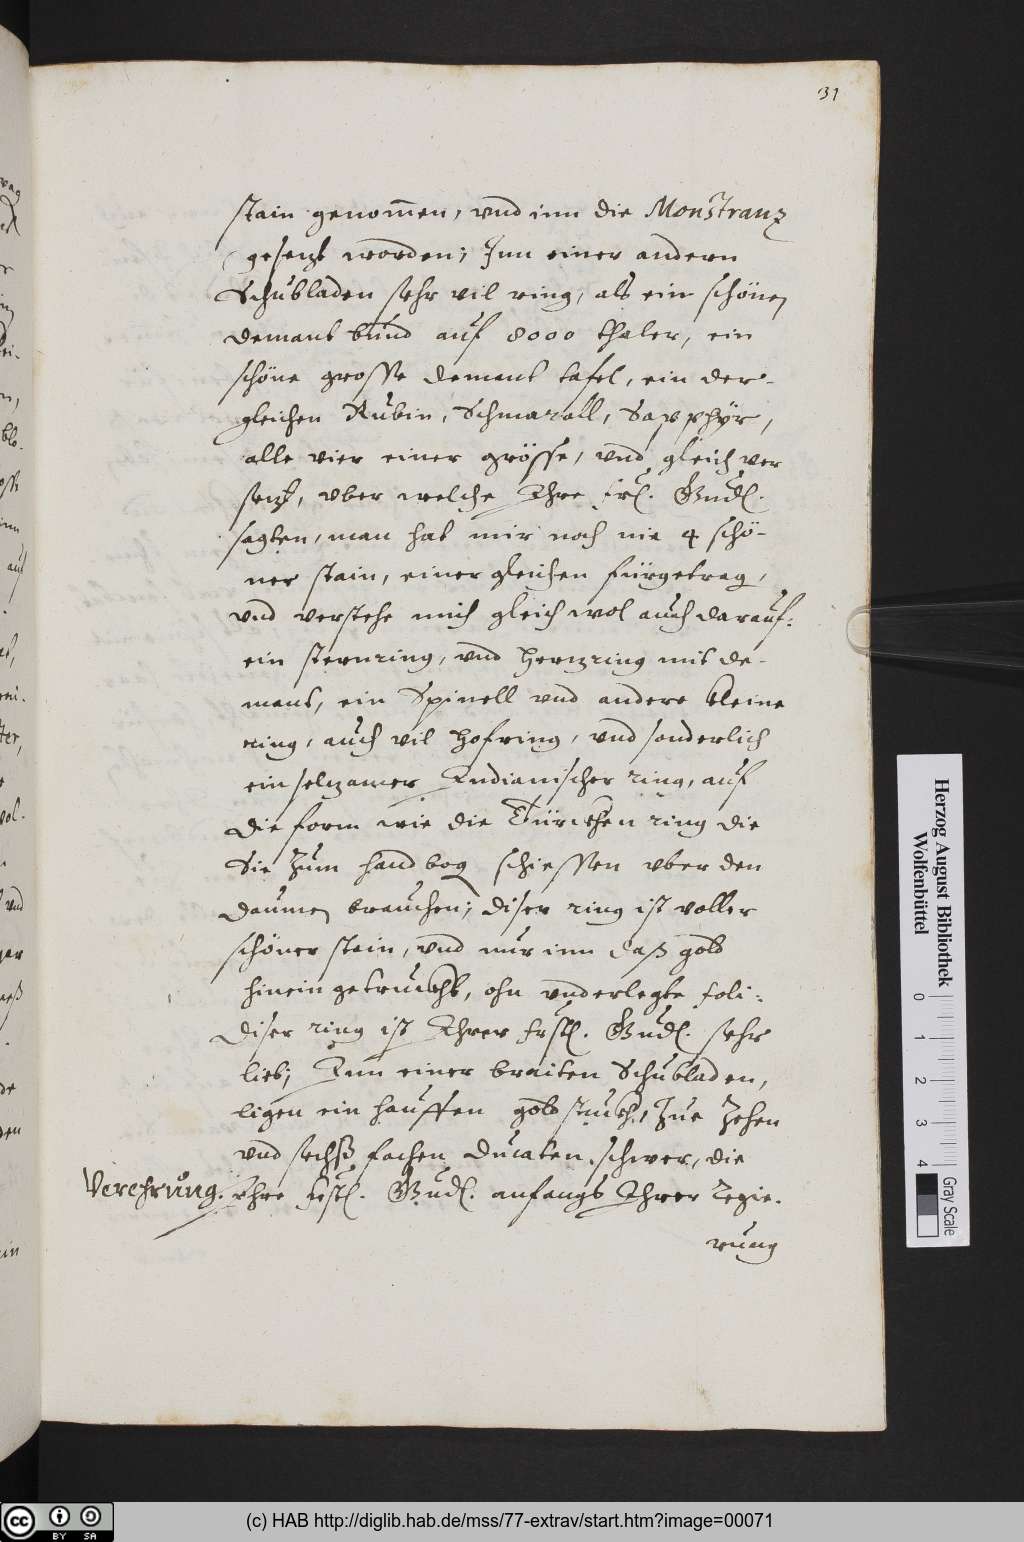 31
stain genom̄en, vnd inn die Monstranz
gesezt worden; Inn einer andern
Schubladen sehr vil ring, als ein schönen
demant bund auf 8000 thaler, ein
schöne grosse demant tafel, ein der-
gleichen Rubin, Schmarall, Sapphÿr,
alle vier einer grösse, vnd gleich ver
sezt, vber welche Ihre frl. Gndl.
sagten, man hat mir noch nie 4 schö-
ner stain, einer gleichen fürgetrag,
vnd verstehe mich gleich wol auch darauf:
ein sternring, vnd herzring mit de-
mant, ein Spinell vnd andere kleine
ring, auch vil hofring, vnd sonderlich
ein selzamer Indianischer ring, auf
die form wie die Türckhen ring die
Sie zum handbog schiessen vber den
daumen brauchen; diser ring ist voller
schöner stein, vnd nur inn daß gold
hinein getruckht, ohn vnderlegte foli:
diser ring ist Ihrer frstl. Gndl. sehr
lieb; Inn einer braiten Schubladen,
ligen ein hauffen gold stuckh, zue zehen
vnd sechß fachen Ducaten schwer, die
Verehrung. Ihre frstl. Gndl. anfangs Ihrer Regie-
rung
Herzog August Bibliothek
Wolfenbüttel
0 1 2 3 4
Gray Scale
cc BY SA
(c) HAB http://diglib.hab.de/mss/77-extrav/start.htm?image=00071